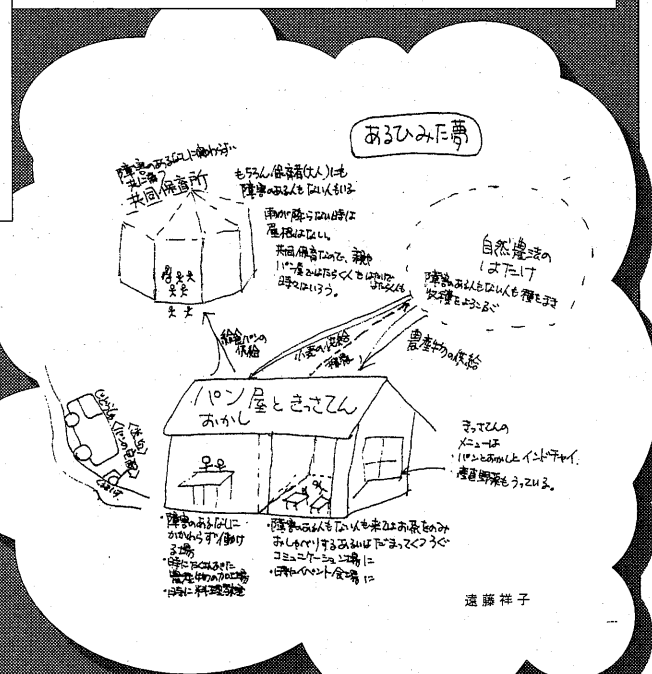 あるひみた夢
障害のあるなしに関わらず
共に育つ
共同保育所
もちろん保育者(大人)にも
障害のある人もない人もいる
雨が降らない時は
屋根はない。
共同保育なので、親や
パン屋ではたらく人も
時々はいろう。
自然農法の
はたけ
障害のある人もない人も種をまき
収穫をよろこぶ
給食パンの
供給
小麦の供給
農産物の供給
パン屋ときっさてん
おかし
きっさてんの
メニューは
・パンとおかしとインドチャイ.
・産直野菜もうっている。
・障害のあるなしに
かかわらず働け
る場
・時にたくさんあきた
農産物の加工場
・時に料理教室
・障害のある人もない人も来てはお茶をのみ
おしゃべりするあるいはだまってくつろぐ
コミュニケーション場に
・時にイベント会場に
遠藤祥子